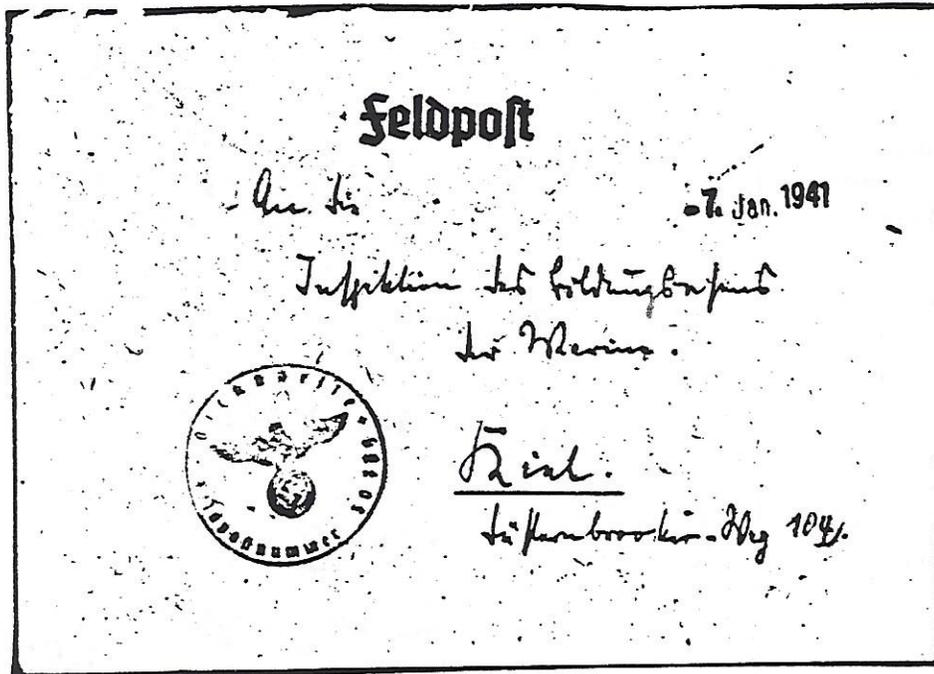 Feldpost
An die
-7. Jan. 1941
Inspektion des Bildungswesens
der Marine.
Kiel.
Düsternbrooker-Weg
Dienststelle
Feldpostnummer